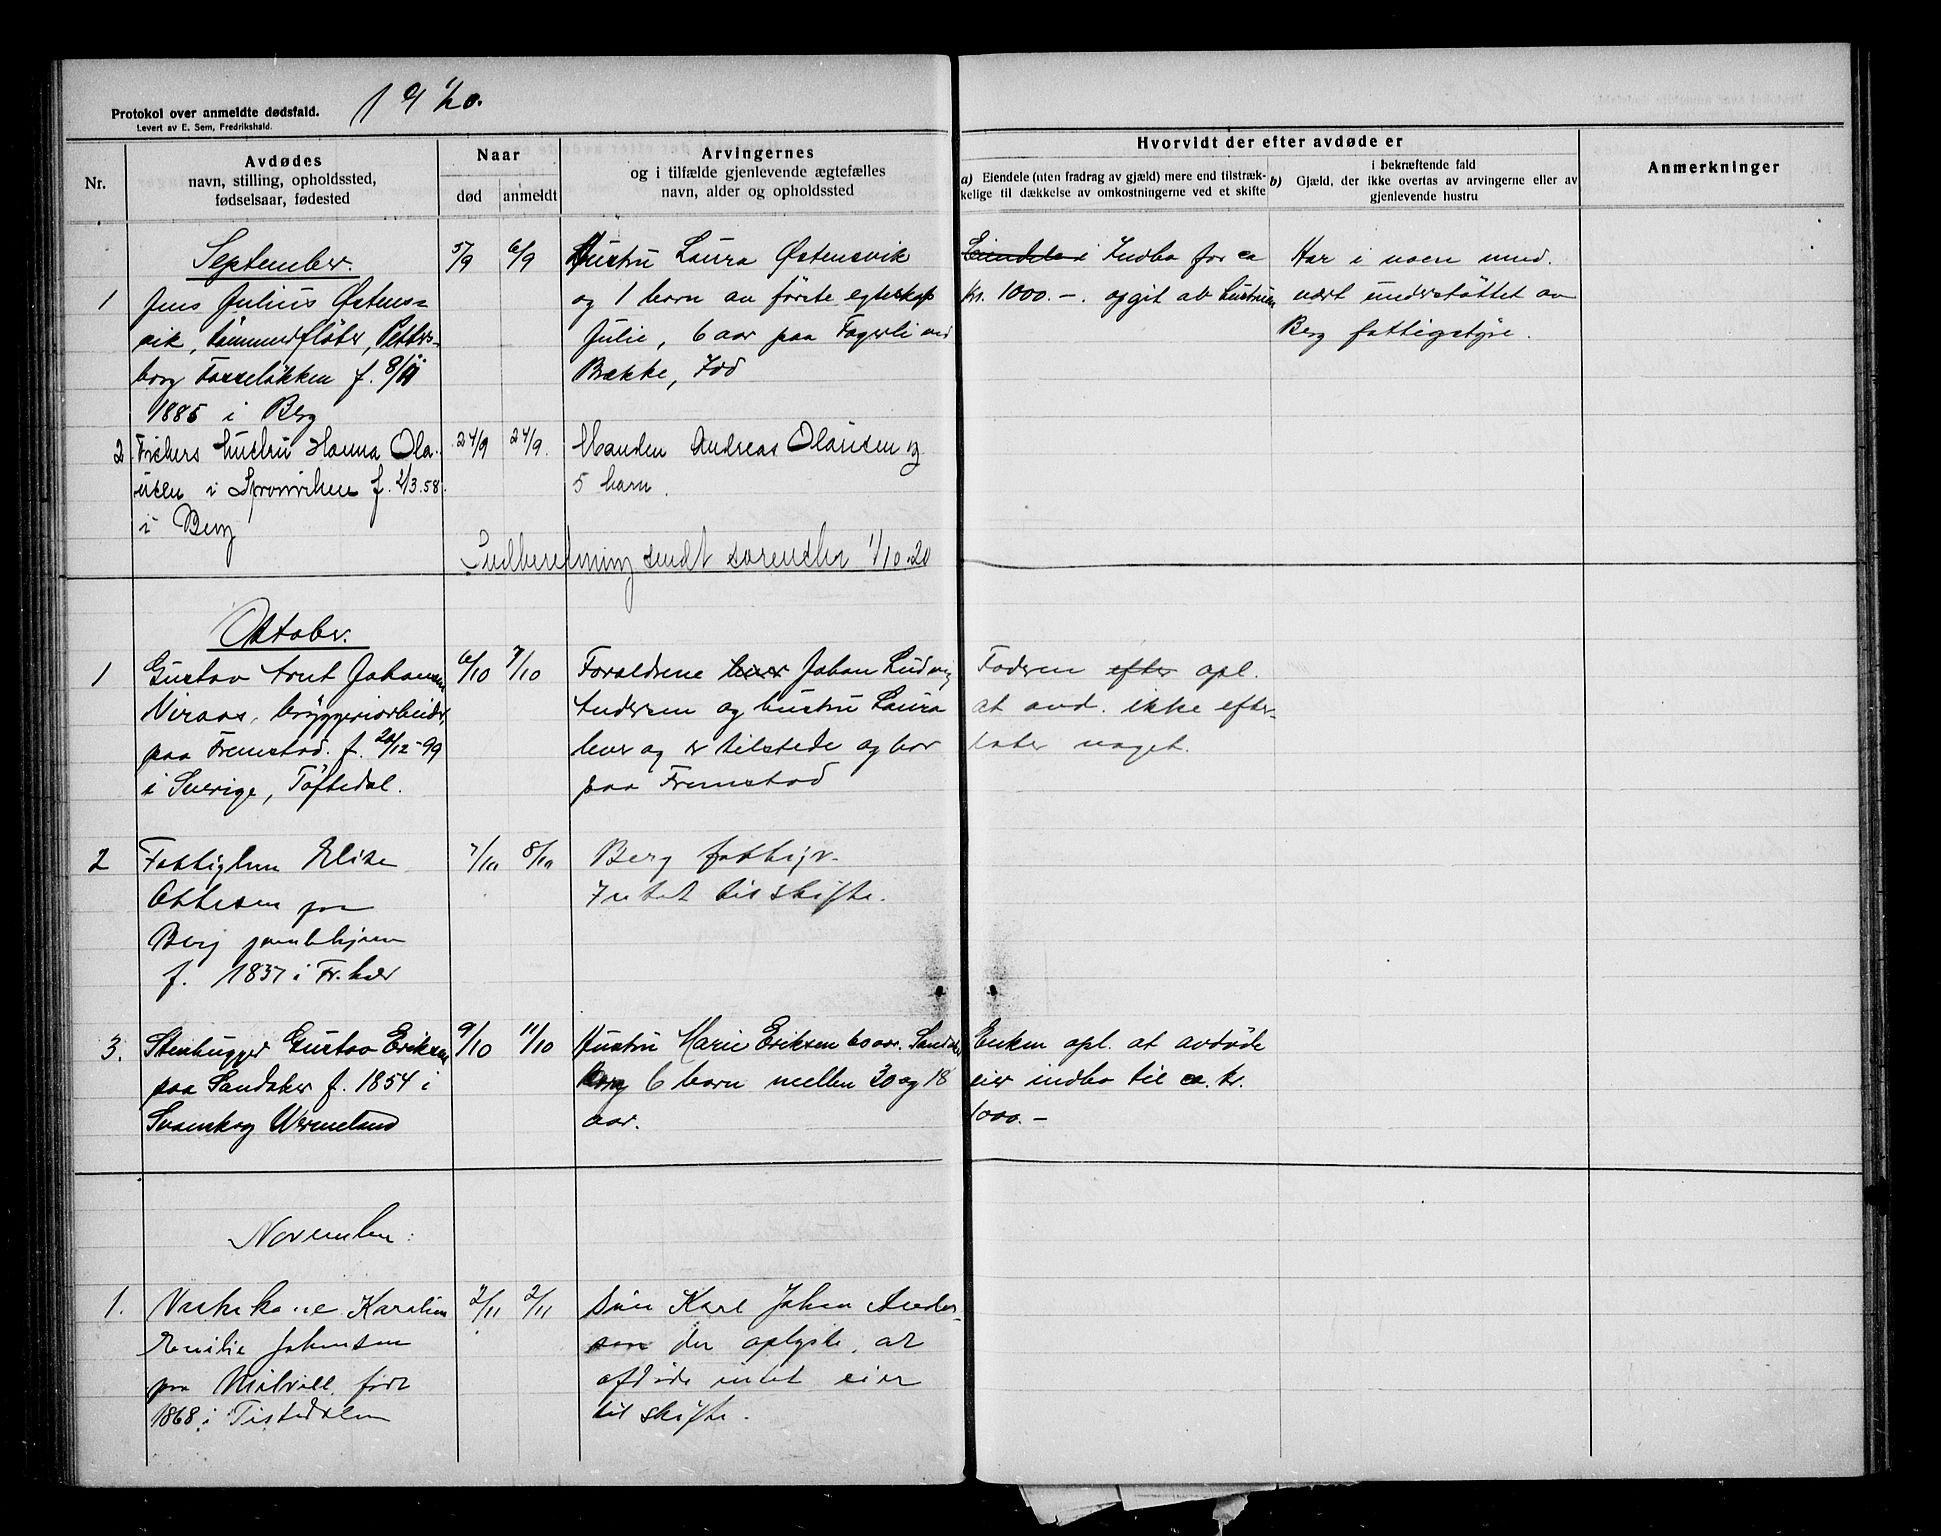 Protokol over anmeldte dødsfald.
Levert av E. Sem, Fredrikshald.
1920.
Nr.
Avdødes
navn, stilling, opholdssted,
fødselsaar, fødested
Naar
død
anmeldt
Arvingernes
og i tilfælde gjenlevende ægtefælles
navn, alder og opholdssted
Hvorvidt der efter avdøde er
a) Eiendele (uten fradrag av gjæld) mere end tilstræk-
kelige til dækkelse av omkostningerne ved et skifte
b)
i bekræftende fald
Gjæld, der ikke overtas av arvingerne eller av
gjenlevende hustru
Anmerkninger
September.
1
Jens Julius Østens-
vik, tømmerfløter, Petters-
borg Torreløkken f. 8/11
1885 i Berg
5/9
6/9
Hustru Laura Østensvik
og 1 barn av første egteskap
Julie, 6 aar paa Fagerli ved
Bakke, Idd
Eiendele i Indbo for ca
Kr. 1000.-. opgit av hustruen
Har i noen mnd.
vært understøttet av
Berg fattigstyre.
2
Fiskers hustru Hanna Ola-
usen i Sponviken f. 2/3.58.
i Berg
24/9
24/9.
Manden Andreas Olausen og
5 barn.
Indberetning sendt sorenskr 1/10-20
Oktober.
1
Gustav Arnt Johansen
Viraas, bryggeriarbeider,
paa Fremstad. f. 20/12-99
i Sverige, Töftedal.
6/10
7/10
Foraldrene lever Johan Ludvig
Andersen og hustru Laura
lever og er tilstede og bor
paa Fremstad
Faderen efter opl.
at avd. ikke efter-
later noget.
2
Fattiglem Elise
Ottesen paa
Berg gamlehjem
f. 1837 i Fr.hald
7/10
8/10
Berg fattigv.
Intet til skifte.
3.
Stenhugger Gustav Eriksen
paa Sandaker f. 1854 i
Svanskog Wermeland
9/10
11/10
Hustru Marie Eriksen 60 aar. Sandaker
og 6 barn mellem 30 og 18
aar.
Enken opl. at avdøde
eier indbo til ca. kr.
1000.-
November:
1.
Vaskekone Karoline
Emilie Johansen
paa født
1868 i Tistedalen
2/11
2/11
Søn Karl Johan Ander-
sen der oplyste, at
afdøde intet eier
til skifte.